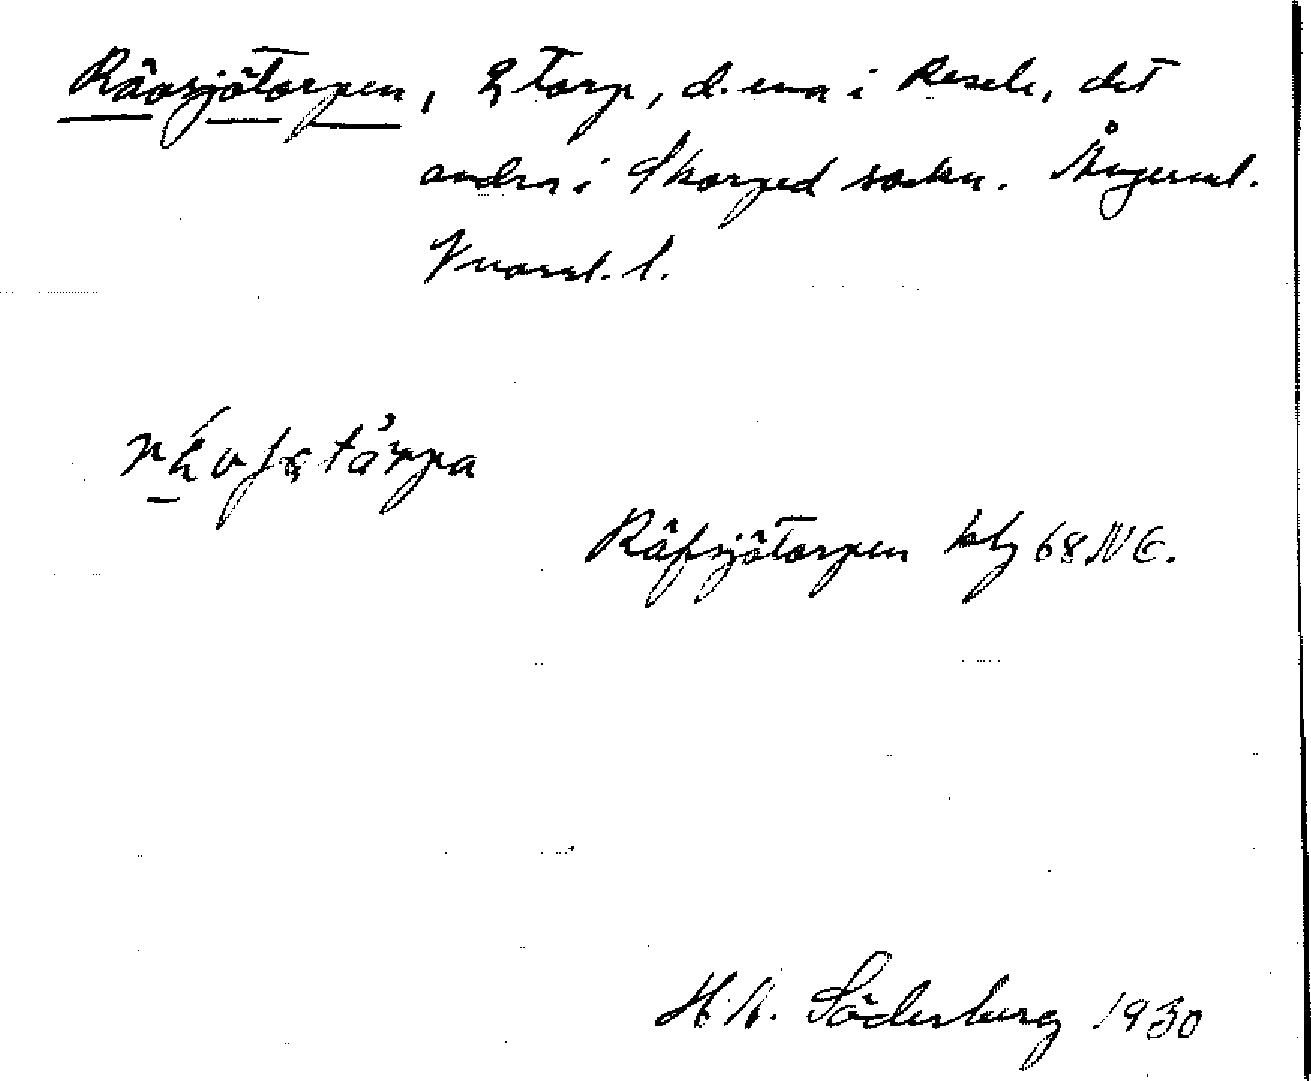 Rävsjötorpen, 2 torp, d. ena i Resele, det
andra i Skorped sockn. Ångerml.
Vnorrl. l.
Räfsjötorpen kbl 68 NE.
H. A. Söderberg 1930